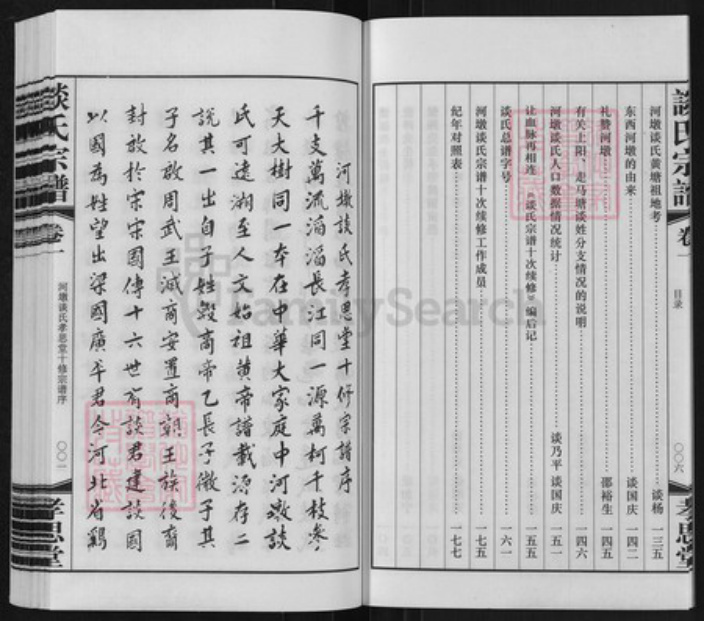 談氏宗譜
卷一
目录
〇〇六
孝思堂
河墩谈氏黄塘祖地考 谈杨 一三五
东西河墩的由来 谈国庆 一四二
礼赞河墩 邵裕生 一四五
有关上阳、走马塘谈姓分支情况的说明 一四六
河墩谈氏人口数据情况统计 谈乃平 谈国庆 一五一
让血脉再相连 《谈氏宗谱十次续修》编后记 一五五
谈氏总谱字号 一六一
河墩谈氏宗谱十次续修工作成员 一七五
纪年对照表 一七七
河墩談氏孝思堂十修宗譜序
千支萬流滔滔長江同一源萬柯千枝參
天大樹同一本在中華大家庭中河墩談
氏可遠溯至人文始祖黄帝譜載源存二
説其一出自子姓殷商帝乙長子微子其
子名啟周武王滅商安置商朝王族後裔
封啟於宋宋國傳十六世有談君建談國
以國為姓望出梁國廣平君今河北省鷄
談氏宗譜
卷一
河墩谈氏孝思堂十修宗谱序
〇〇一
孝思堂
FamilySearch